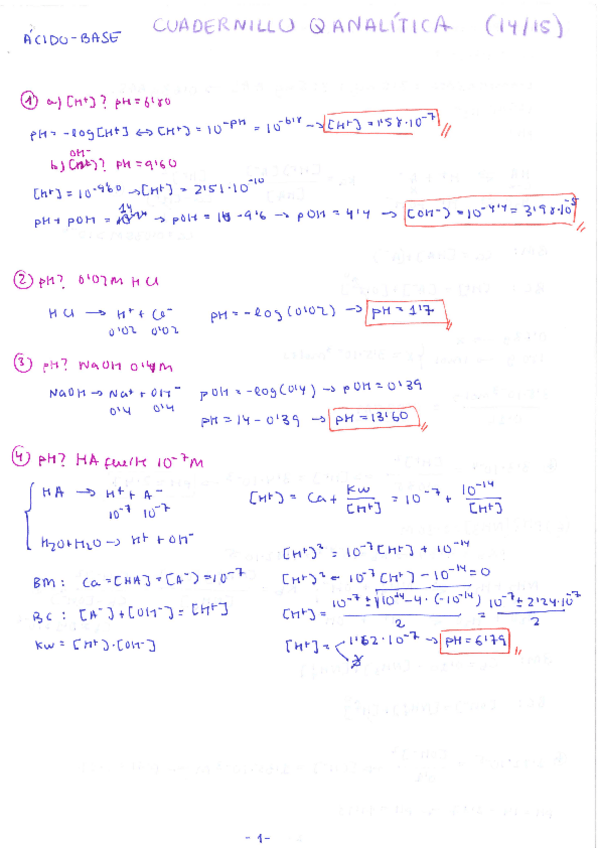 ÁCIDO-BASE CUADERNILLO Q ANALÍTICA (14/15)
① a) [H⁺]? pH = 6'80
pH = -log[H⁺] ↔ [H⁺] = 10^-pH = 10^-6'8 → [H⁺] = 1'58·10⁻⁷
OH⁻
b) [H⁺]? pH = 9'60
[H⁺] = 10^-9'60 → [H⁺] = 2'51·10⁻¹⁰
pH + pOH = 14 → pOH = 14 - 9'6 → pOH = 4'4 → [OH⁻] = 10^-4'4 = 3'98·10⁻⁵
② pH? 0'02M HCl
HCl → H⁺ + Cl⁻ pH = -log(0'02) → pH = 1'7
0'02 0'02
③ pH? NaOH 0'4M
NaOH → Na⁺ + OH⁻ pOH = -log(0'4) → pOH = 0'39
0'4 0'4 pH = 14 - 0'39 → pH = 13'60
④ pH? HA fuerte 10⁻⁷M
HA → H⁺ + A⁻ [H⁺] = Ca + Kw/[H⁺] = 10⁻⁷ + 10⁻¹⁴/[H⁺]
10⁻⁷ 10⁻⁷
H₂O + H₂O → H⁺ + OH⁻ [H⁺]² = 10⁻⁷[H⁺] + 10⁻¹⁴
BM: Ca = [HA] = [A⁻] = 10⁻⁷ [H⁺]² - 10⁻⁷[H⁺] - 10⁻¹⁴ = 0
BC: [A⁻] + [OH⁻] = [H⁺] [H⁺] = (10⁻⁷ ± √(10⁻¹⁴ - 4·(-10⁻¹⁴)))/2 = (10⁻⁷ ± 2'24·10⁻⁷)/2
Kw = [H⁺]·[OH⁻] [H⁺] = 1'62·10⁻⁷ → pH = 6'79
-1-